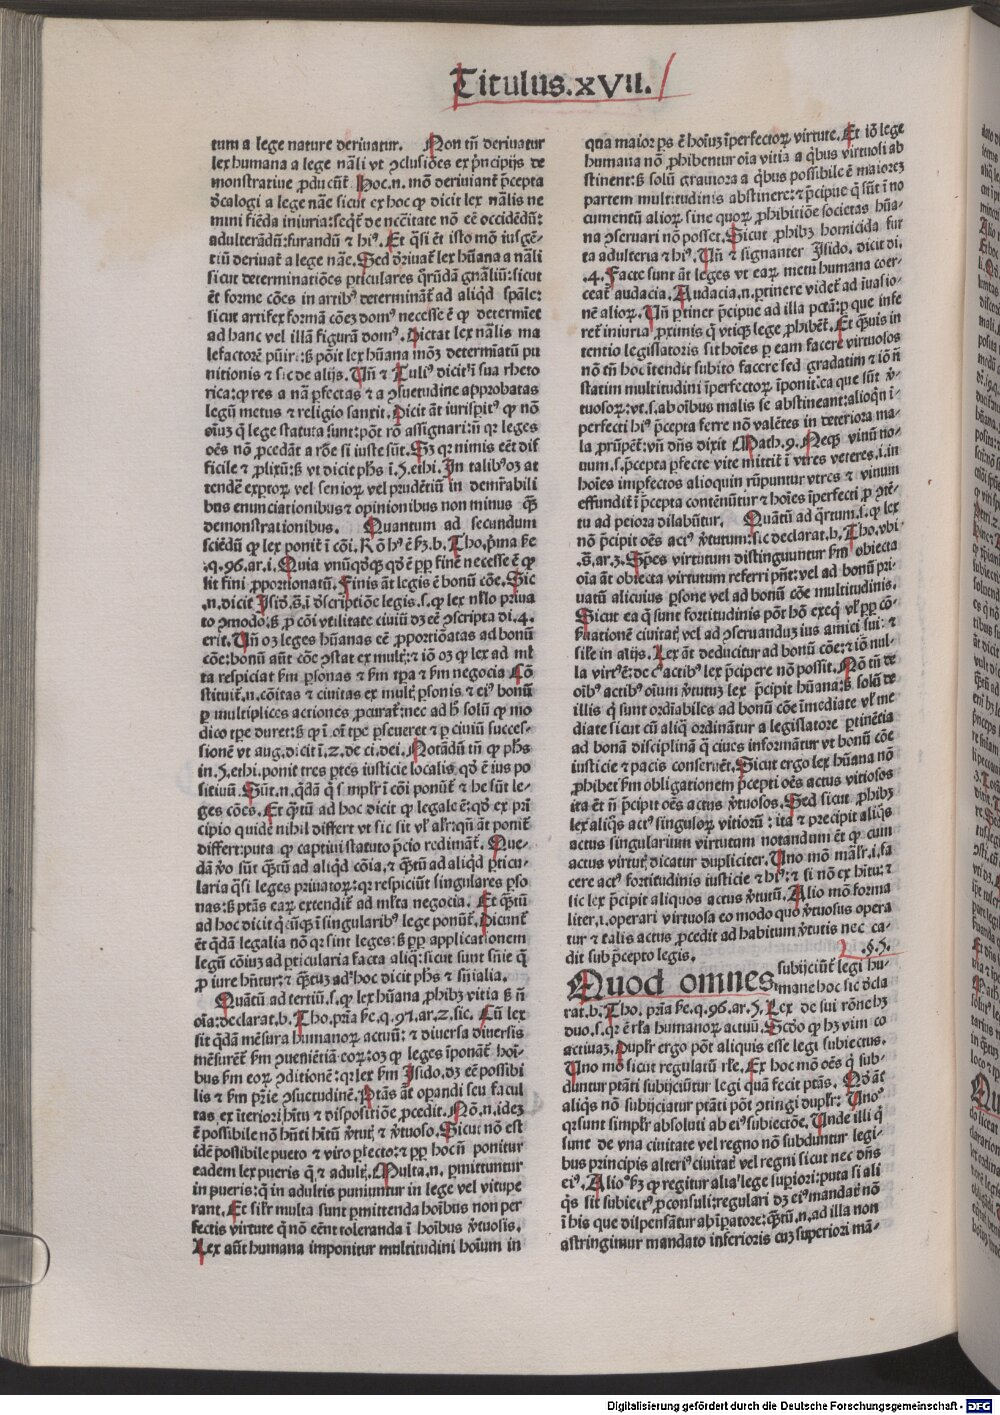 Titulus.xVII.
tum a lege nature deriuatur. Non tñ deriuatur
lex humana a lege nãli vt ɔclusiões ex p̃ncipijs de
monstratiue ꝓducũt̃. Hoc.n. mõ deriuiant̃ p̃cepta
d̕calogi a lege nãe sicut ex hoc ꝙ dicit lex nãlis ne
mini fiẽda iniuria: seq̃t̃ de nec̃itate nõ eẽ occidẽdũ:
adulterãdũ: furandũ ⁊ hiꝰ. Et q̃si ẽt isto mõ iusgẽ-
tiũ deriuat̃ a lege nãe. Sed d̕riuat̃ lex hũana a nãli
sicut determinatiões ꝑticulares q̃rũdã gñaliũ: sicut
ẽt forme cões in artibꝰ determinãt̃ ad aliqd̃ sp̃ale:
sicut artifex formã cõeꝫ domꝰ necesse ẽ ꝙ determiet
ad hanc vel illã figurã domꝰ. Dictat lex nãlis ma
lefactorẽ pũiri: ꝫ põit lex hũana modũ determiatũ pu
nitionis ⁊ sic de alijs. Uñ ⁊ Tuliꝰ dicit ĩ sua rheto
rica: ꝙ res a nã ꝑfectas ⁊ a ɔsuetudine approbatas
legũ metus ⁊ religio sanxit. Dicit ãt iurisꝑitꝰ ꝙ nõ
oĩuꝫ q̃ lege statuta sunt: põt rõ assignari: ñ qr leges
oẽs nõ ꝓcedãt a rõe si iuste sũt. Sꝫ qr nimis eẽt dif
ficile ⁊ ꝓlixũ: ꝫ vt dicit ph̃s ĩ.5.ethi. In talibꝰ oꝫ at
tendẽ exꝑtoꝝ vel senioꝝ vel prudẽtiũ in demr̃abili
bus enunciationibus ⁊ opinionibus non minus q̃ꝫ
demonstrationibus. Quantum ad secundum
sciẽdũ ꝙ lex ponit̃ ĩ cõi. Rõ hꝰ ẽ ẜꝫ.b. Tho. p̃ma ẜe
.q.96.ar.i. Quia vnũqd̃qꝫ qd̃ ẽ ꝓp finẽ necesse ẽ ꝙ
sit fini ꝓportionatũ. Finis ãt legis ẽ bonũ cõe. Sic
.n. dicit Isid̕.d̕.ĩ d̕scriptiõe legis.s. ꝙ lex nłlo priua
to ɔmodo. ꝫ ꝓ cõi vtilitate ciuiũ dꝫ eẽ ɔscripta di.4.
erit. Uñ oꝫ leges hũanas eẽ ꝓportiõatas ad bonũ
cõe: bonũ aũt cõe ɔstat ex multꝭ: ⁊ iõ oꝫ ꝙ lex ad ml̃
ta respiciat ẜm ꝑsonas ⁊ ẜm tꝑa ⁊ ẜm negocia Cõ
stituit̃.n. cõitas ⁊ ciuitas ex multꝭ ꝑsonis ⁊ eiꝰ bonũ
ꝑ multiplices actiones ꝓcurat̃: nec ad h̕ solũ ꝙ mo
dico tꝑe duret: ꝫ ꝙ ĩ oĩ tꝑe ꝑseueret ⁊ ꝑ ciuiũ succes-
sionẽ vt aug. dicit ĩ.2. de ci. dei. Notãdũ tñ ꝙ ph̃s
in.5.ethi. ponit tres ꝑtes iusticie localis qd̃ ẽ ius po
sitiuũ. Sũt.n. q̃dã q̃ simplr̃ ĩ cõi ponũt̃ ⁊ he sũt le-
ges cões. Et q̃tũ ad hoc dicit ꝙ legale ẽ: qd̃ ex pri
cipio quidẽ nihil differt vt sic sit vl̃ alr̃: qñ ãt ponit̃
differt: puta ꝙ captiui statuto p̃cio redimãt̃. Que-
dã v̕o sũt q̃tũ ad aliqd̃ cõia, ⁊ q̃tũ ad aliqd̃ ꝑticu-
laria q̃si leges priuatoꝝ: qr respiciũt singulares ꝑso
nas: ꝫ ptãs eaꝝ extendit̃ ad ml̃ta negocia. Et q̃tũ
ad hoc dicit q̃cũqꝫ ĩ singularibꝰ lege ponũt̃. Dicunt̃
ẽt q̃dã legalia nõ qꝛ sint leges: ꝫ ꝓp applicationem
legũ cõiuꝫ ad ꝑticularia facta aliq̃: sicut sunt sñie q̃
ꝓ iure hñtur: ⁊ q̃tuꝫ ad hoc dicit ph̃s ⁊ sñialia.
Quãtũ ad tertiũ.s. ꝙ lex hũana ꝓhibꝫ vitia ꝫ ñ
oĩa: declarat.b. Tho. pria ẜe.q.97.ar.2. sic. Cũ lex
sit q̃dã mẽsura humanoꝝ actuũ: ⁊ diuersa diuersis
mẽsurẽt̃ ẜm ɔueniẽtiã eoꝝ: oꝫ ꝙ leges ĩponãt̃ hoĩ-
bus ẜm eoꝝ ɔditionẽ: qꝛ lex ẜm Isido. dꝫ eẽ possibi
lis ⁊ ẜm p̃rie ɔsuetudinẽ. Ptãs ãt oꝑandi seu facul
tas ex ĩteriori h̃itu ⁊ dispositiõe ꝓcedit. Nõ.n. ideꝫ
ẽ possibile nõ hñti h̃itũ v̕tutꝭ ⁊ v̕tuoso. Sicut nõ est
idẽ possibile puero ⁊ viro ꝑfecto: ⁊ ꝓp hoc ñ ponitur
eadem lex pueris q̃ ⁊ adultꝭ. Multa.n. ꝑmittuntur
in pueris: q̃ in adultis puniuntur in lege vel vitupe
rant. Et silr̃ multa sunt ꝑmittenda hoĩbus non per
fectis virtute q̃ nõ eẽnt toleranda ĩ hoĩbus v̕tuosis.
Lex aũt humana imponitur multitudini hoĩum in
qua maior ꝑs ẽ hoĩuꝫ ĩperfectoꝝ virtute. Et iõ lege
humana nõ ꝓhibentur oĩa vitia a q̃bus virtuosi ab
stinent: ꝫ solũ grauiora a q̃bus possibile ẽ maiorẽ
partem multitudinis abstinere: ⁊ p̃cipue q̃ sũt ĩ no
cumentũ alioꝝ sine quoꝝ ꝓhibitiõe societas hũa-
na ɔseruari nõ posset. Sicut ꝓhibꝫ homicida fur
ta adulteria ⁊ hiꝰ. Uñ ⁊ signanter Isido. dicit di.
.4. Facte sunt ãt leges vt eaꝝ metu humana coer-
ceat̃ audacia. Audacia.n. ꝑtinere videt̃ ad iuasio-
nẽ alioꝝ. Uñ ꝑtinet p̃cipue ad illa pctã: ꝑ que infe
ret̃ iniuria ꝓximis q̃ vtiqꝫ lege ꝓhibẽt̃. Et q̃uis in
tentio legislatoris sit hoĩes ꝑ eam facere virtuosos
nõ tñ hoc ĩtendit subito facere sed gradatim ⁊ iõ ñ
statim multitudini ĩperfectoꝝ ĩponit ea que sũt v̕-
tuosoꝝ: vt.s. ab oĩbus malis se abstineant: alioqn̄ ĩ-
perfecti hiꝰ p̃cepta ferre nõ valẽtes in deteriora ma-
la prũpẽt: vñ dñs dixit Math.9. Neqꝫ vinũ no-
uum.s. p̃cepta ꝑfecte vite mittit̃ ĩ vtres veteres.i. in
hoĩes imꝑfectos alioquin rũpuntur vtres ⁊ vinum
effundit̃ ĩ p̃cepta contẽnũtur ⁊ hoĩes ĩperfecti ꝓ ɔtẽ-
tu ad peiora dilabũtur. Quãtũ ad q̃rtum.s. ꝙ lex
nõ p̃cipit oẽs actꝰ v̕tutum: sic declarat.b. Tho. vbi
.s̕.ar.3. Spẽs virtutum distinguuntur ẜm obiecta
oĩa ãt obiecta virtutum referri pñt: vel ad bonũ pri-
uatũ alicuius ꝑsone vel ad bonũ cõe multitudinis.
Sicut ea q̃ sunt fortitudinis põt hõ exeq̃ vl̃ ꝓp cõ-
ẜuationẽ ciuitatꝭ vel ad ɔseruanduꝫ ius amici sui: ⁊
sil̃e in alijs. Lex ãt deducitur ad bonũ cõe: ⁊ iõ nul-
la virtꝰ ẽ: de cꝰ actibꝰ lex p̃cipere nõ possit. Nõ tñ de
oĩbꝰ actibꝰ oĩum v̕tutuꝫ lex p̃cipit hũana: ꝫ solũ de
illis q̃ sunt ordĩabiles ad bonũ cõe ĩmediate vl̃ me
diate sicut cũ aliq̃ ordinãtur a legislatore ꝑtinẽtia
ad bonã disciplinã q̃ ciues informãtur vt bonũ cõe
iusticie ⁊ pacis conseruẽt. Sicut ergo lex hũana nõ
ꝓhibet ẜm obligationem p̃cepti oẽs actus vitiosos
ita ẽt ñ p̃cipit oẽs actus v̕tuosos. Sed sicut ꝓhibꝫ
lex aliq̃s actꝰ singuloꝝ vitiorũ: ita ⁊ precipit aliq̃s
actus singularium virtutum notandum ẽt ꝙ cum
actus virtutꝭ dicatur dupliciter. Uno mõ mãlr̃.i. fa
cere actꝰ fortitudinis iusticie ⁊ hiꝰ: ⁊ si nõ ex h̃itu: ⁊
sic lex p̃cipit aliquos actus v̕tutũ. Alio mõ forma
liter.i. operari virtuosa eo modo quo v̕tuosus opera
tur ⁊ talis actus ꝓcedit ad habitum v̕tutis nec ca-
dit sub p̃cepto legis. .§.5.
Quod omnes subijciũt̃ legi hu-
mane hoc sic d̕cla
rat.b. Tho. pria ẜe.q.96.ar.5. Lex de sui rõne hꝫ
duo.s. ꝙ ẽ rl̃a humanoꝝ actuũ. Scd̃o ꝙ hꝫ vim co
actiuaꝫ. Duplr̃ ergo põt aliquis esse legi subiectus.
Uno mõ sicut regulatũ rl̃e. Ex hoc mõ oẽs q̃ sub-
duntur ptãti subijciũtur legi quã fecit ptãs. Qd̃ ãt
aliqs nõ subijciatur ptãti põt ɔtingi duplr̃: Unoꝰ
qꝛ sunt simplr̃ absoluti ab eiꝰ subiectiõe. Unde illi q̃
sunt de vna ciuitate vel regno nõ subduntur legi-
bus principis alteriꝰ ciuitatꝭ vel regni sicut nec dñs
eiꝰ. Alioꝰ ẜꝫ ꝙ regitur alia lege suꝑiori: puta si ali
q̃s sit subiectꝰ ꝓconsuli: regulari dꝫ eiꝰ mandat̃ nõ
ĩ his que dispensãtur ab ĩꝑatore: q̃tũ.n. ad illa non
astringitur mandato inferioris cuꝫ superiori mã-
Digitalisierung gefördert durch die Deutsche Forschungsgemeinschaft - DFG